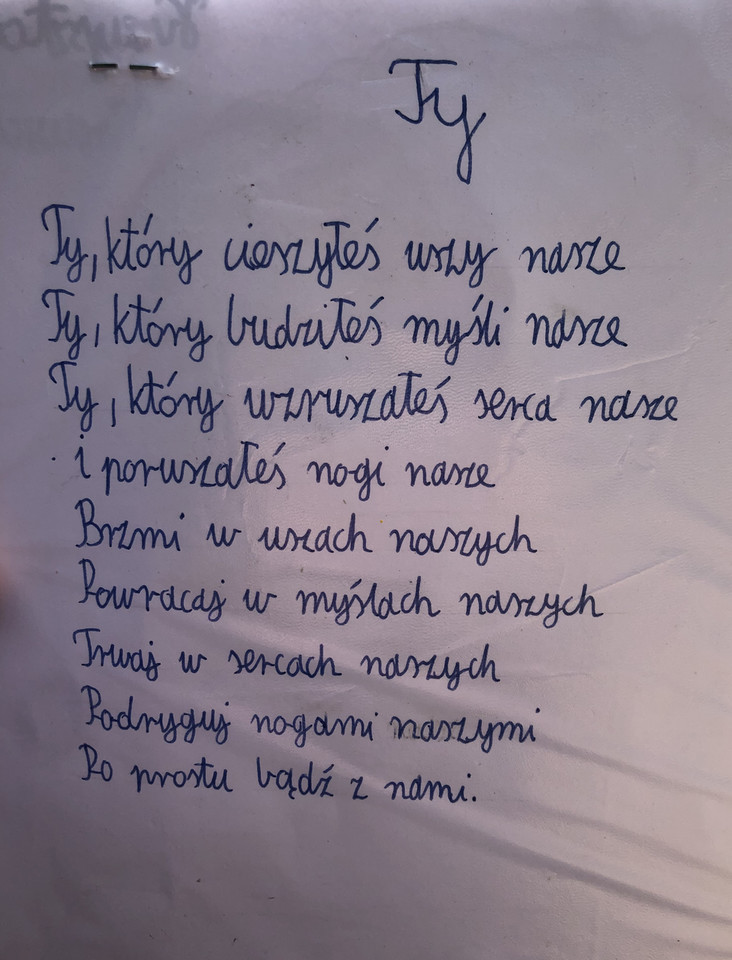 Ty
Ty, który cieszyłeś uszy nasze
Ty, który budziłeś myśli nasze
Ty, który wzruszałeś serca nasze
i poruszałeś nogi nasze
Brzmi w uszach naszych
Powracaj w myślach naszych
Trwaj w sercach naszych
Podryguj nogami naszymi
Po prostu bądź z nami.